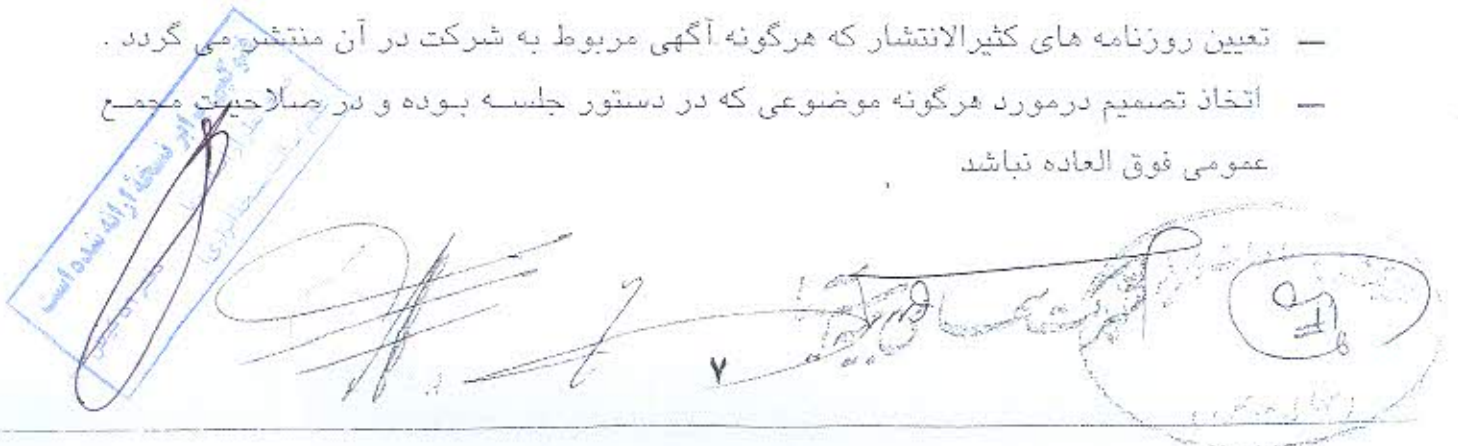 — تعیین روزنامه های کثیرالانتشار که هرگونه آگهی مربوط به شرکت در آن منتشر می گردد .
— اتخاذ تصمیم درمورد هرگونه موضوعی که در دستور جلسه بوده و در صلاحیت مجمع
عمومی فوق العاده نباشد
برابر نسخه ارائه شده است
۷